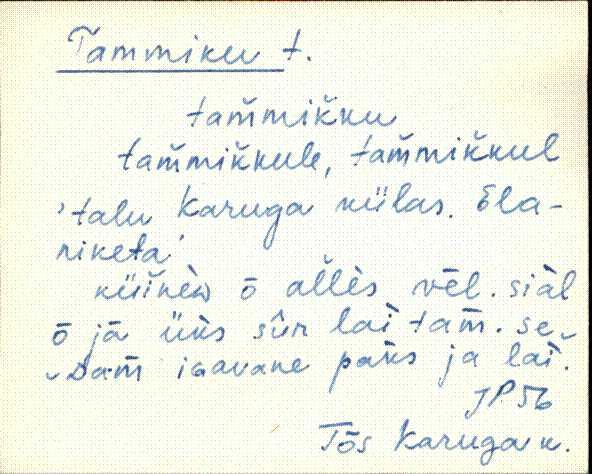 Tammiku t.
tam̆mik̆ku
tam̆mik̆kule, tam̆mik̆kul
'talu Karuga külas. Ela-
niketa'
ō al̆lès vēl. siàl
ō jā üks sûr lai tam̄. se-
isavane paks ja lai.
JP56
Tōs Karuga k.